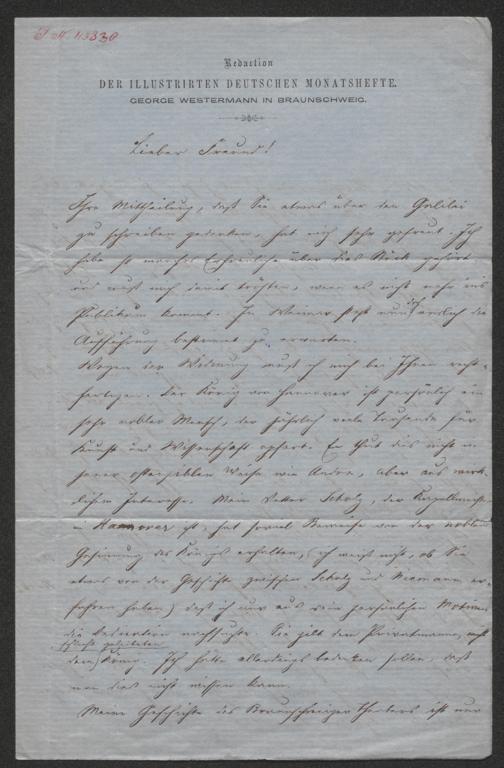 I.N. 43330
Redaction
DER ILLUSTRIRTEN DEUTSCHEN MONATSHEFTE.
GEORGE WESTERMANN IN BRAUNSCHWEIG.
Lieber Freund!
Ihre Mittheilung, daß Sie etwas über den Galilei
zu schreiben gedenken, hat mich sehr gefreut. Ich
habe so manches Erfreuliche über das Stück gehört
und muß mich damit trösten, wenn es nicht mehr ins
Publikum kommt. In Weimar steht nun doch endlich die
Aufführung bestimmt zu erwarten.
Wegen der Widmung muß ich mich bei Ihnen recht-
fertigen. Der König von Hannover ist persönlich ein
sehr nobler Mensch, der jährlich viele Tausende für
Kunst und Wissenschaft opfert. Er thut das nicht in
jener ostensiblen Weise wie Andre, aber aus wirk-
lichem Interesse. Mein Vetter Scholz, der Kapellmeister
in Hannover ist, hat soviel Beweise von der noblen
Gesinnung des Königs erhalten, (ich weiß nicht, ob Sie
etwas von der Geschichte zwischen Scholz und Niemann er-
fahren haben) daß ich nur aus rein persönlichen Motiven
die Dedication nachsuchte. Sie gilt dem Privatmanne, nicht
dem König. Ich hätte allerdings bedenken sollen, daß
man dies nicht wissen kann.
Meine Geschichte des Braunschweiger Theaters ist nur